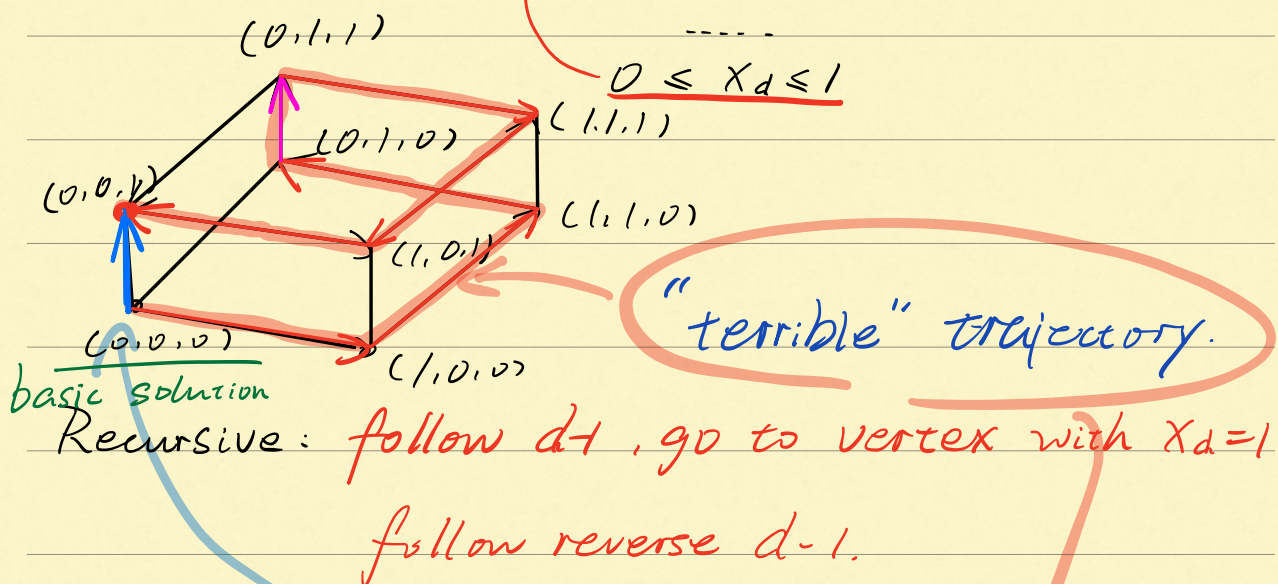 (0,1,1)
-----
0 ≤ x_d ≤ 1
(1,1,1)
(0,1,0)
(0,0,1)
(1,1,0)
(1,0,1)
"terrible" trajectory.
(0,0,0)
(1,0,0)
basic solution
Recursive: follow d-1, go to vertex with x_d=1
follow reverse d-1.